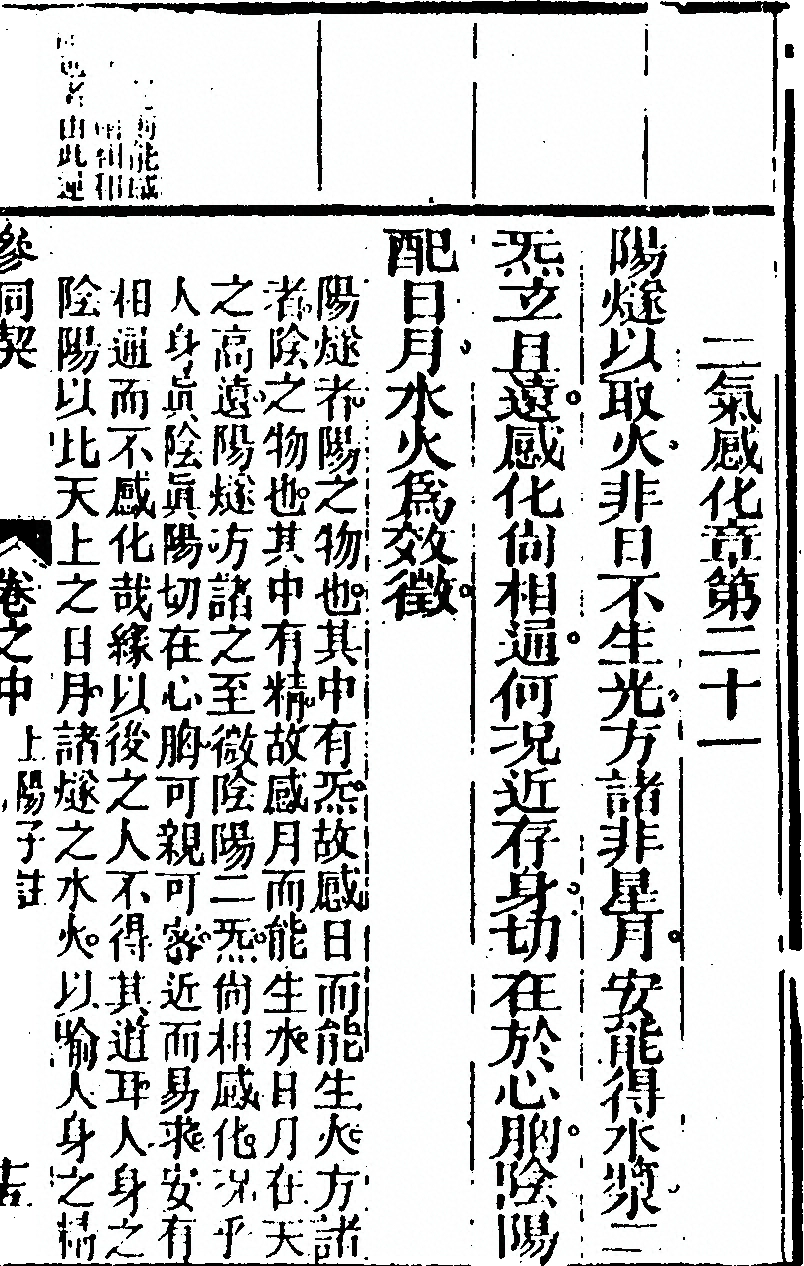 二氣感化章第二十一
陽燧以取火非日不生光方諸非星月安能得水漿二
炁立且遠感化尙相通何况近存身切在於心胸陰陽
配日月水火爲效徵
陽燧者陽之物也其中有炁故感日而能生火方諸
者陰之物也其中有精故感月而能生水日月在天
之高遠陽燧方諸之至微陰陽二炁尙相感化况乎
人身眞陰眞陽切在心胸可親可密近而易求安有
相通而不感化哉緣以後之人不得其道耳人身之
陰陽以比天上之日月諸燧之水火以喻人身之精
能感
相
者由此運
參同契
卷之中
上陽子註